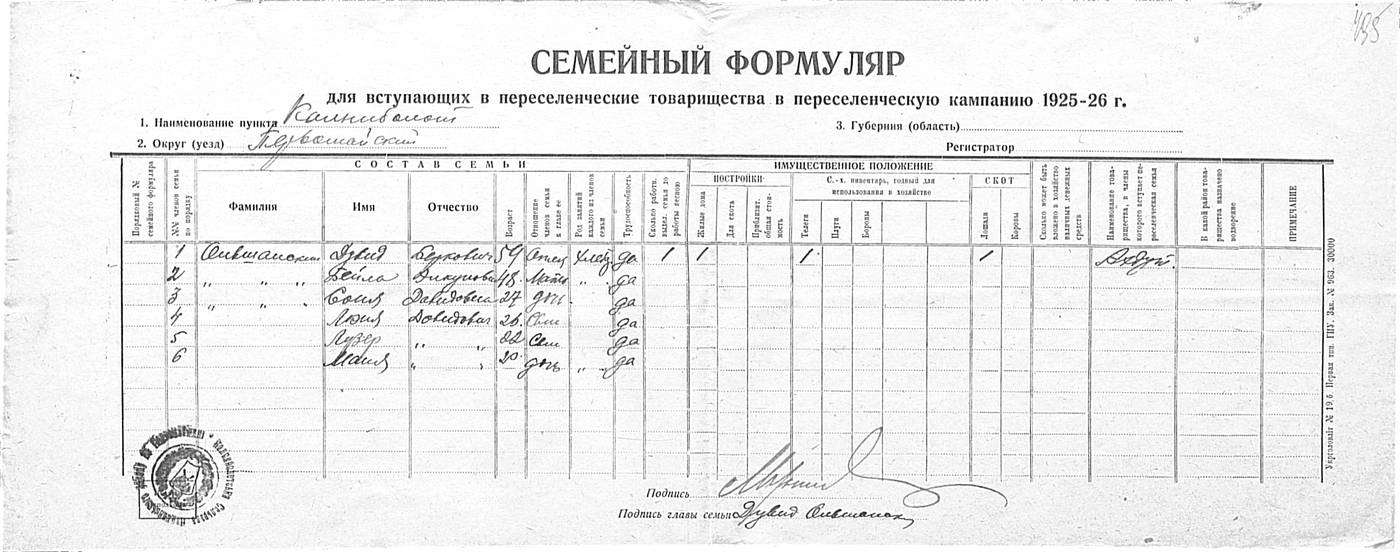 495
СЕМЕЙНЫЙ ФОРМУЛЯР
для вступающих в переселенческие товарищества в переселенческую кампанию 1925-26 г.
1. Наименование пункта Калниболот
3. Губерния (область)
2. Округ (уезд) Первомайский
Регистратор
СОСТАВ СЕМЬИ
ИМУЩЕСТВЕННОЕ ПОЛОЖЕНИЕ
Порядковый № семейного формуляра
№№ членов семьи по порядку
Фамилия
Имя
Отчество
Возраст
Отношение членов семьи к главе ее
Род занятий каждого из членов семьи
Трудоспособность
Сколько работн. выдел. семья до работы весною
ПОСТРОЙКИ
Жилые дома
Для скота
Приблизит. общая стоимость
С.-х. инвентарь, годный для использования в хозяйстве
Телеги
Плуги
Бороны
СКОТ
Лошади
Коровы
Сколько может быть вложено в хозяйство наличных денежных средств
Наименование товарищества, в члены которого вступает переселенческая семья
В какой район товарищества назначено водворение
ПРИМЕЧАНИЕ
1 Ольшанский Дувид Беркович 54 Отец Хлеб да 1 1 1 1
2 " " " Бейла 48 Мать " да
3 " " " Соня Давидовна 27 дочь да
4 Давидович 25 Сын да
5 Лузер " " 22 Сын да
6 Маня " " 20 дочь " да
Подпись
Подпись главы семьи Дувид Ольшанск
Укрголовліт № 19.6. Первая тип. ГПУ. Зак. № 963. 30000